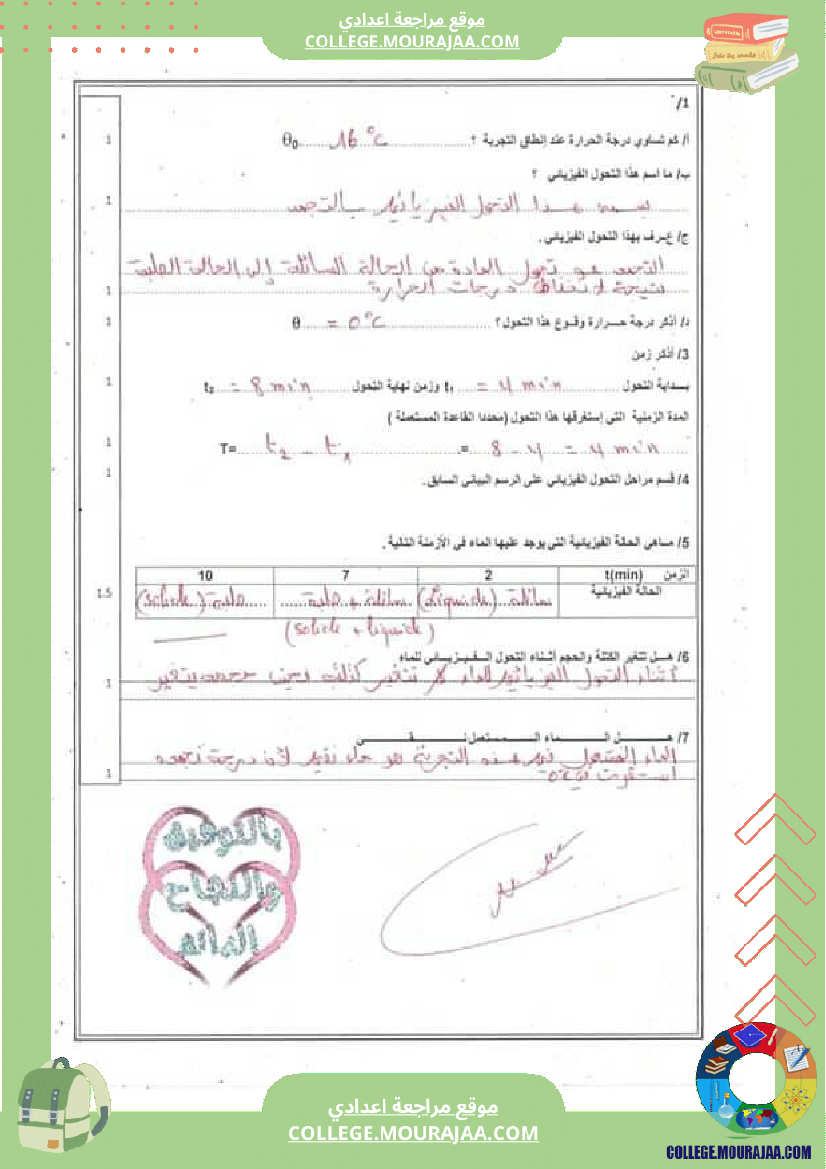 موقع مراجعة اعدادي
COLLEGE.MOURAJAA.COM
1/
1 أ/ كم تساوي درجة الحرارة عند إنطلاق التجربة ؟ 16 °C θ0
ب/ ما اسم هذا التحول الفيزيائي ؟
1 يسمى هذا التحول الفيزيائي بالتجمد
ج/ عرف بهذا التحول الفيزيائي .
التجمد هو تحول المادة من الحالة السائلة إلى الحالة الصلبة
1 نتيجة انخفاض درجات الحرارة
1 د/ أذكر درجة حرارة وقوع هذا التحول؟ θ = 0 °C
3/ أذكر زمن
1 بداية التحول t1 = 4 min وزمن نهاية التحول t2 = 8 min
المدة الزمنية التي إستغرقها هذا التحول (محددا القاعدة المستعملة )
1 T= t2 - t1 = 8 - 4 = 4 min
1 4/ قسم مراحل التحول الفيزيائي على الرسم البياني السابق.
5/ ماهي الحالة الفيزيائية التي يوجد عليها الماء في الأزمنة التالية .
الزمن t(min) 2 7 10
1.5 الحالة الفيزيائية سائلة (liquide) سائلة + صلبة صلبة (solide)
(solide + liquide)
6/ هل تتغير الكتلة والحجم أثناء التحول الفيزيائي للماء
1 أثناء التحول الفيزيائي للماء لا تتغير كتلته حجمه يتغير
7/ هل الماء المستعمل نقي
الماء المستعمل في هذه التجربة هو ماء نقي لأن درجة تجمده
1 استقرت في 0°
بالتوفيق
والنجاح
الدائم
موقع مراجعة اعدادي
COLLEGE.MOURAJAA.COM
COLLEGE.MOURAJAA.COM